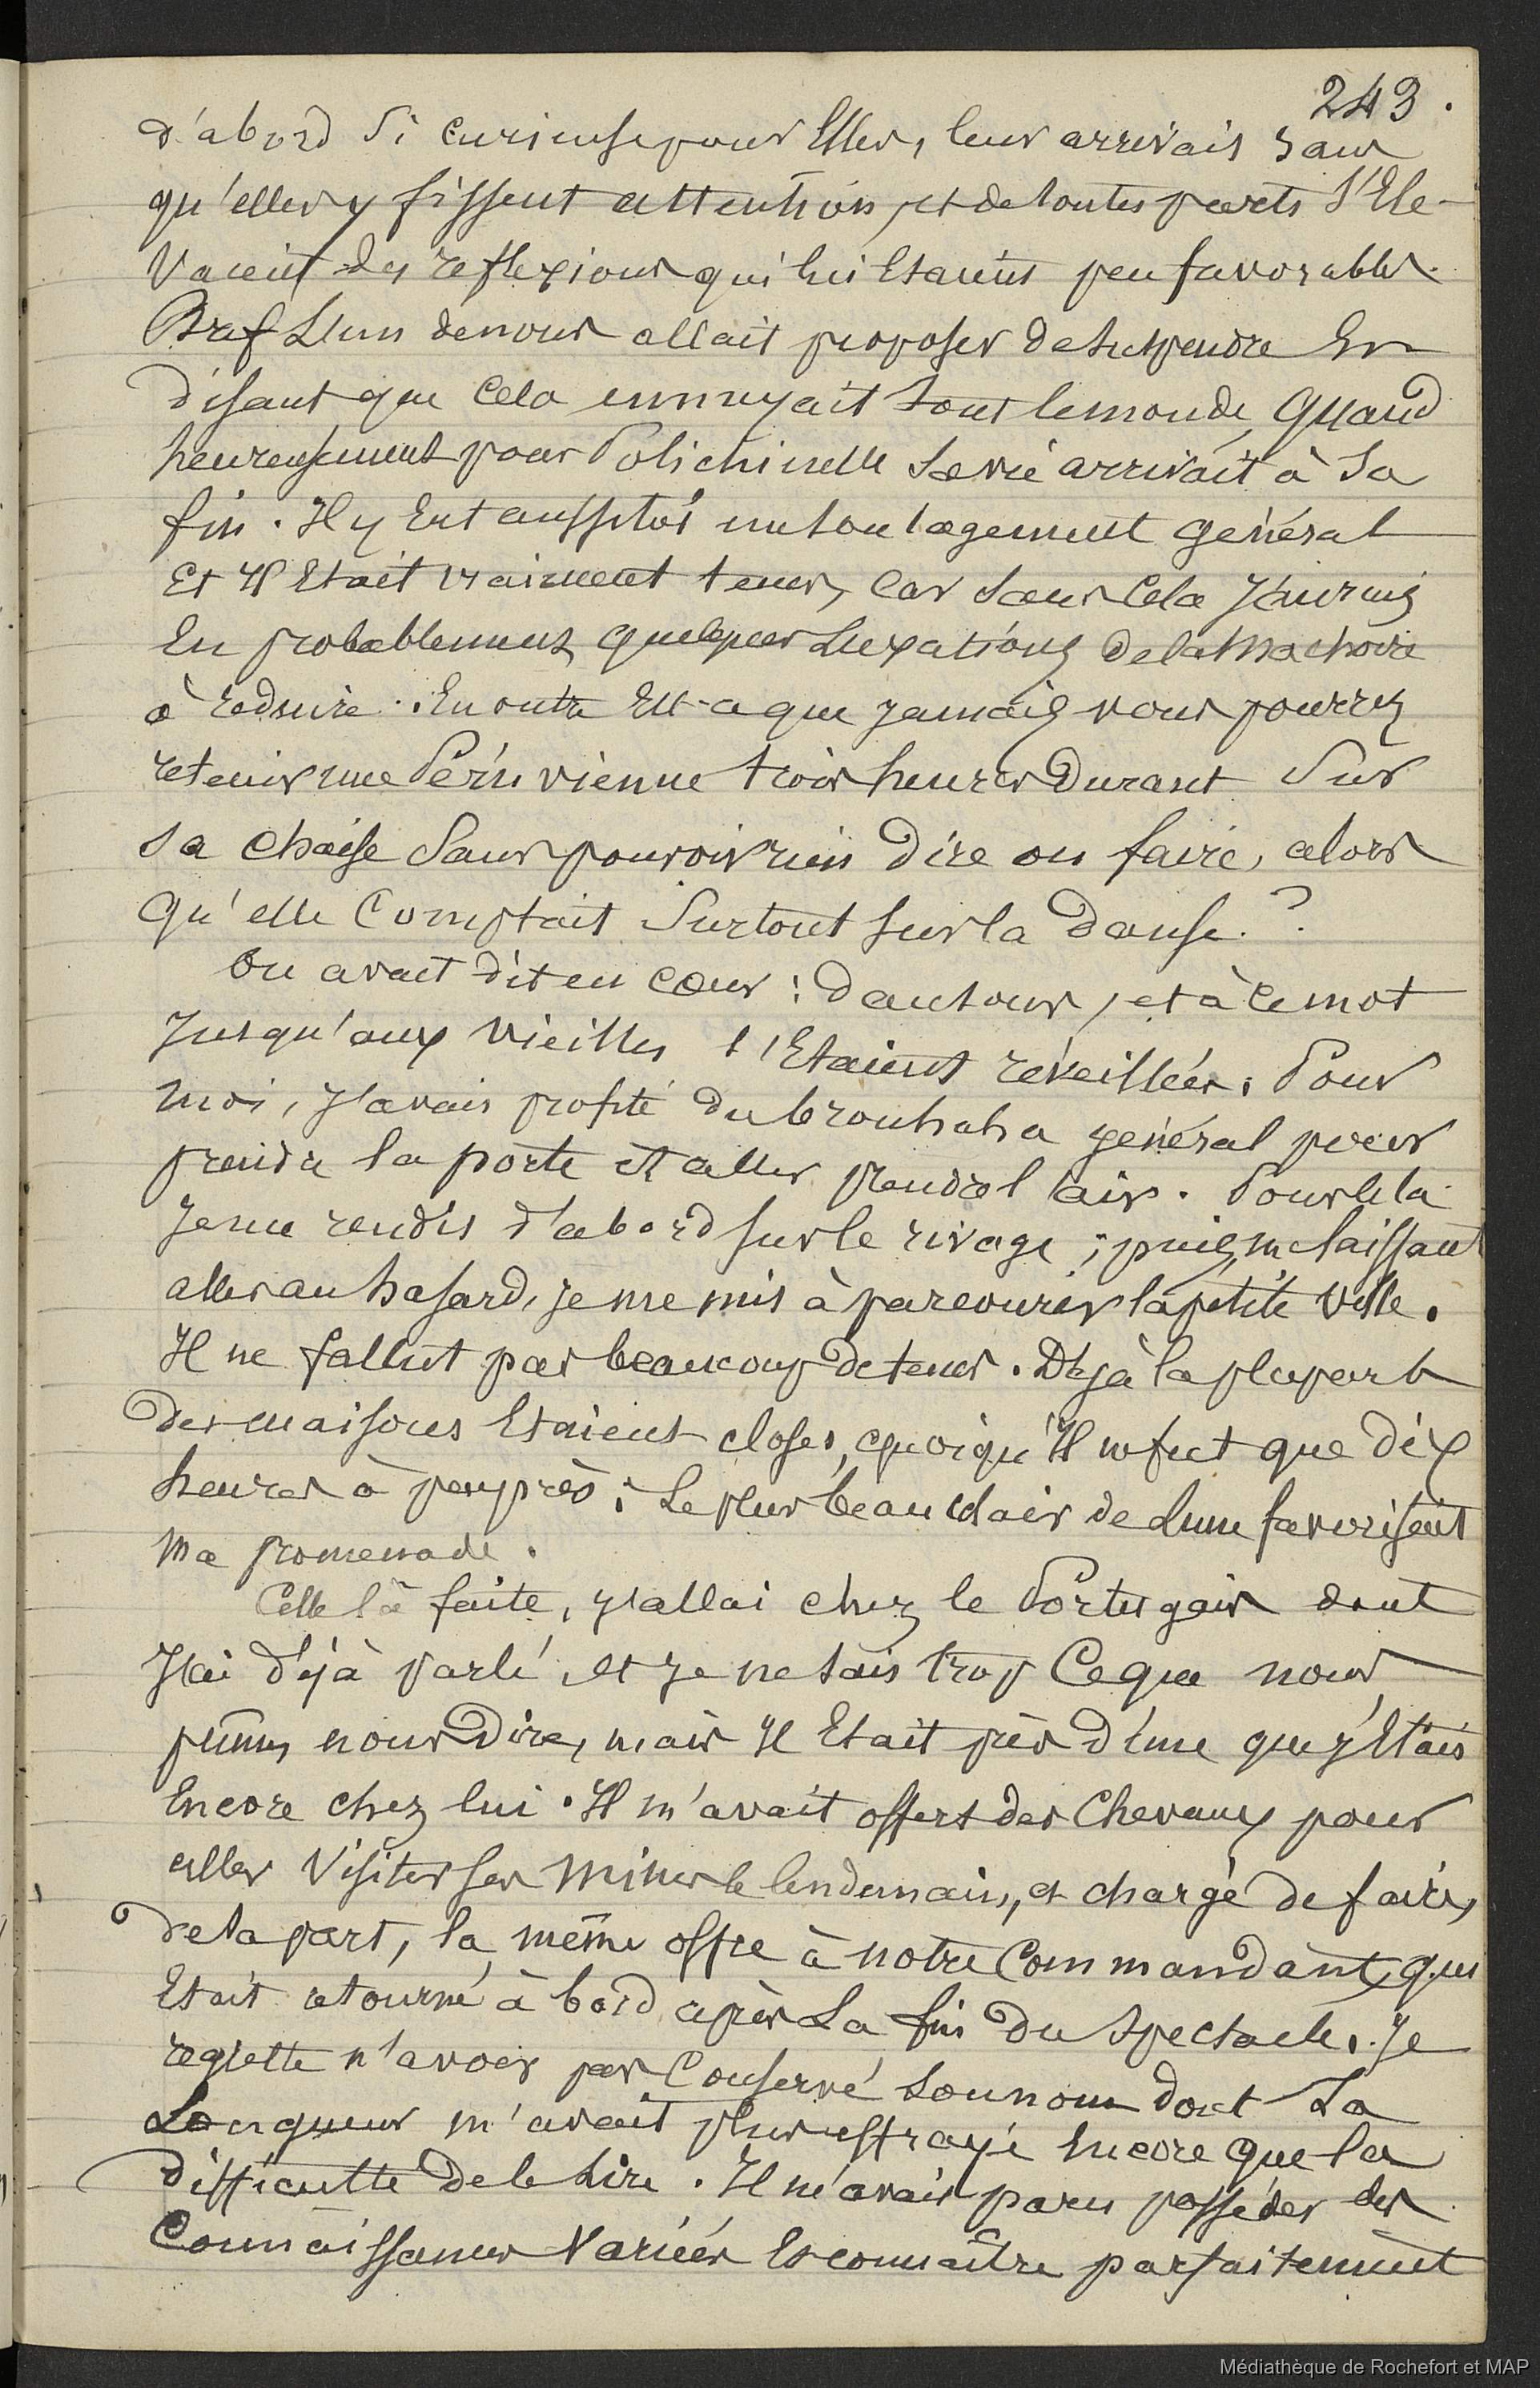 243.
d'abord si curieuse pour Elles, leur arrivait sans
qu'elles y fissent attention, et de toutes parts s'Ele-
vaient des reflexions qui lui Etaient peu favorables.
Bref L'un de nous allait proposer de suspendre En
disant que Cela ennuyait tout le monde, quand
heureusement pour Polichinelle sa vie arrivait à sa
fin. Il y Eut aussitôt un soulagement général
Et Il Etait vraiment tems, Car sans Cela J'aurais
Eu probablement quelques Luxations de la Machoire
à reduire. En outre Est-ce que jamais vous pourrez
retenir une Péruvienne trois heures Durant Sur
sa chaise sans pouvoir rien dire ou faire, alors
qu'elle Comptait Surtout sur la danse.?
On avait dit en cœur: dansons, et à ce mot
Jusqu'aux vieilles s'Etaient réveillées. Pour
moi, J'avais profité du brouhaha général pour
prendre la porte et aller prendre l'air. Pour Cela
Je me rendis d'abord sur le rivage; puis, me laissant
aller au hasard, je me mis à parcourir la petite Ville.
Il ne fallut pas beaucoup de tems. Déjà la plupart
des maisons Etaient closes, quoiqu'Il ne fut que dix
heures à peu près; Le plus beau clair de Lune favorisait
ma promenade.
Celle là faite, j'allai chez le Portugais dont
J'ai déjà parlé, et je ne sais trop Ce que nous
pûmes nous Dire, mais Il Etait près d'une que j'Etais
Encore chez lui. Il m'avait offert des Chevaux pour
aller Visiter ses Mines le lendemain, et chargé de faire,
de sa part, la même offre à notre Commandant, qui
Etait retourné à bord après La fin du Spectacle. Je
regrette n'avoir pas Conservé son nom dont La
Longueur m'avait plus effrayé Encore que la
difficulté de le lire. Il m'avait paru posséder des
Connaissances Variées Et connaître parfaitement
Médiathèque de Rochefort et MAP